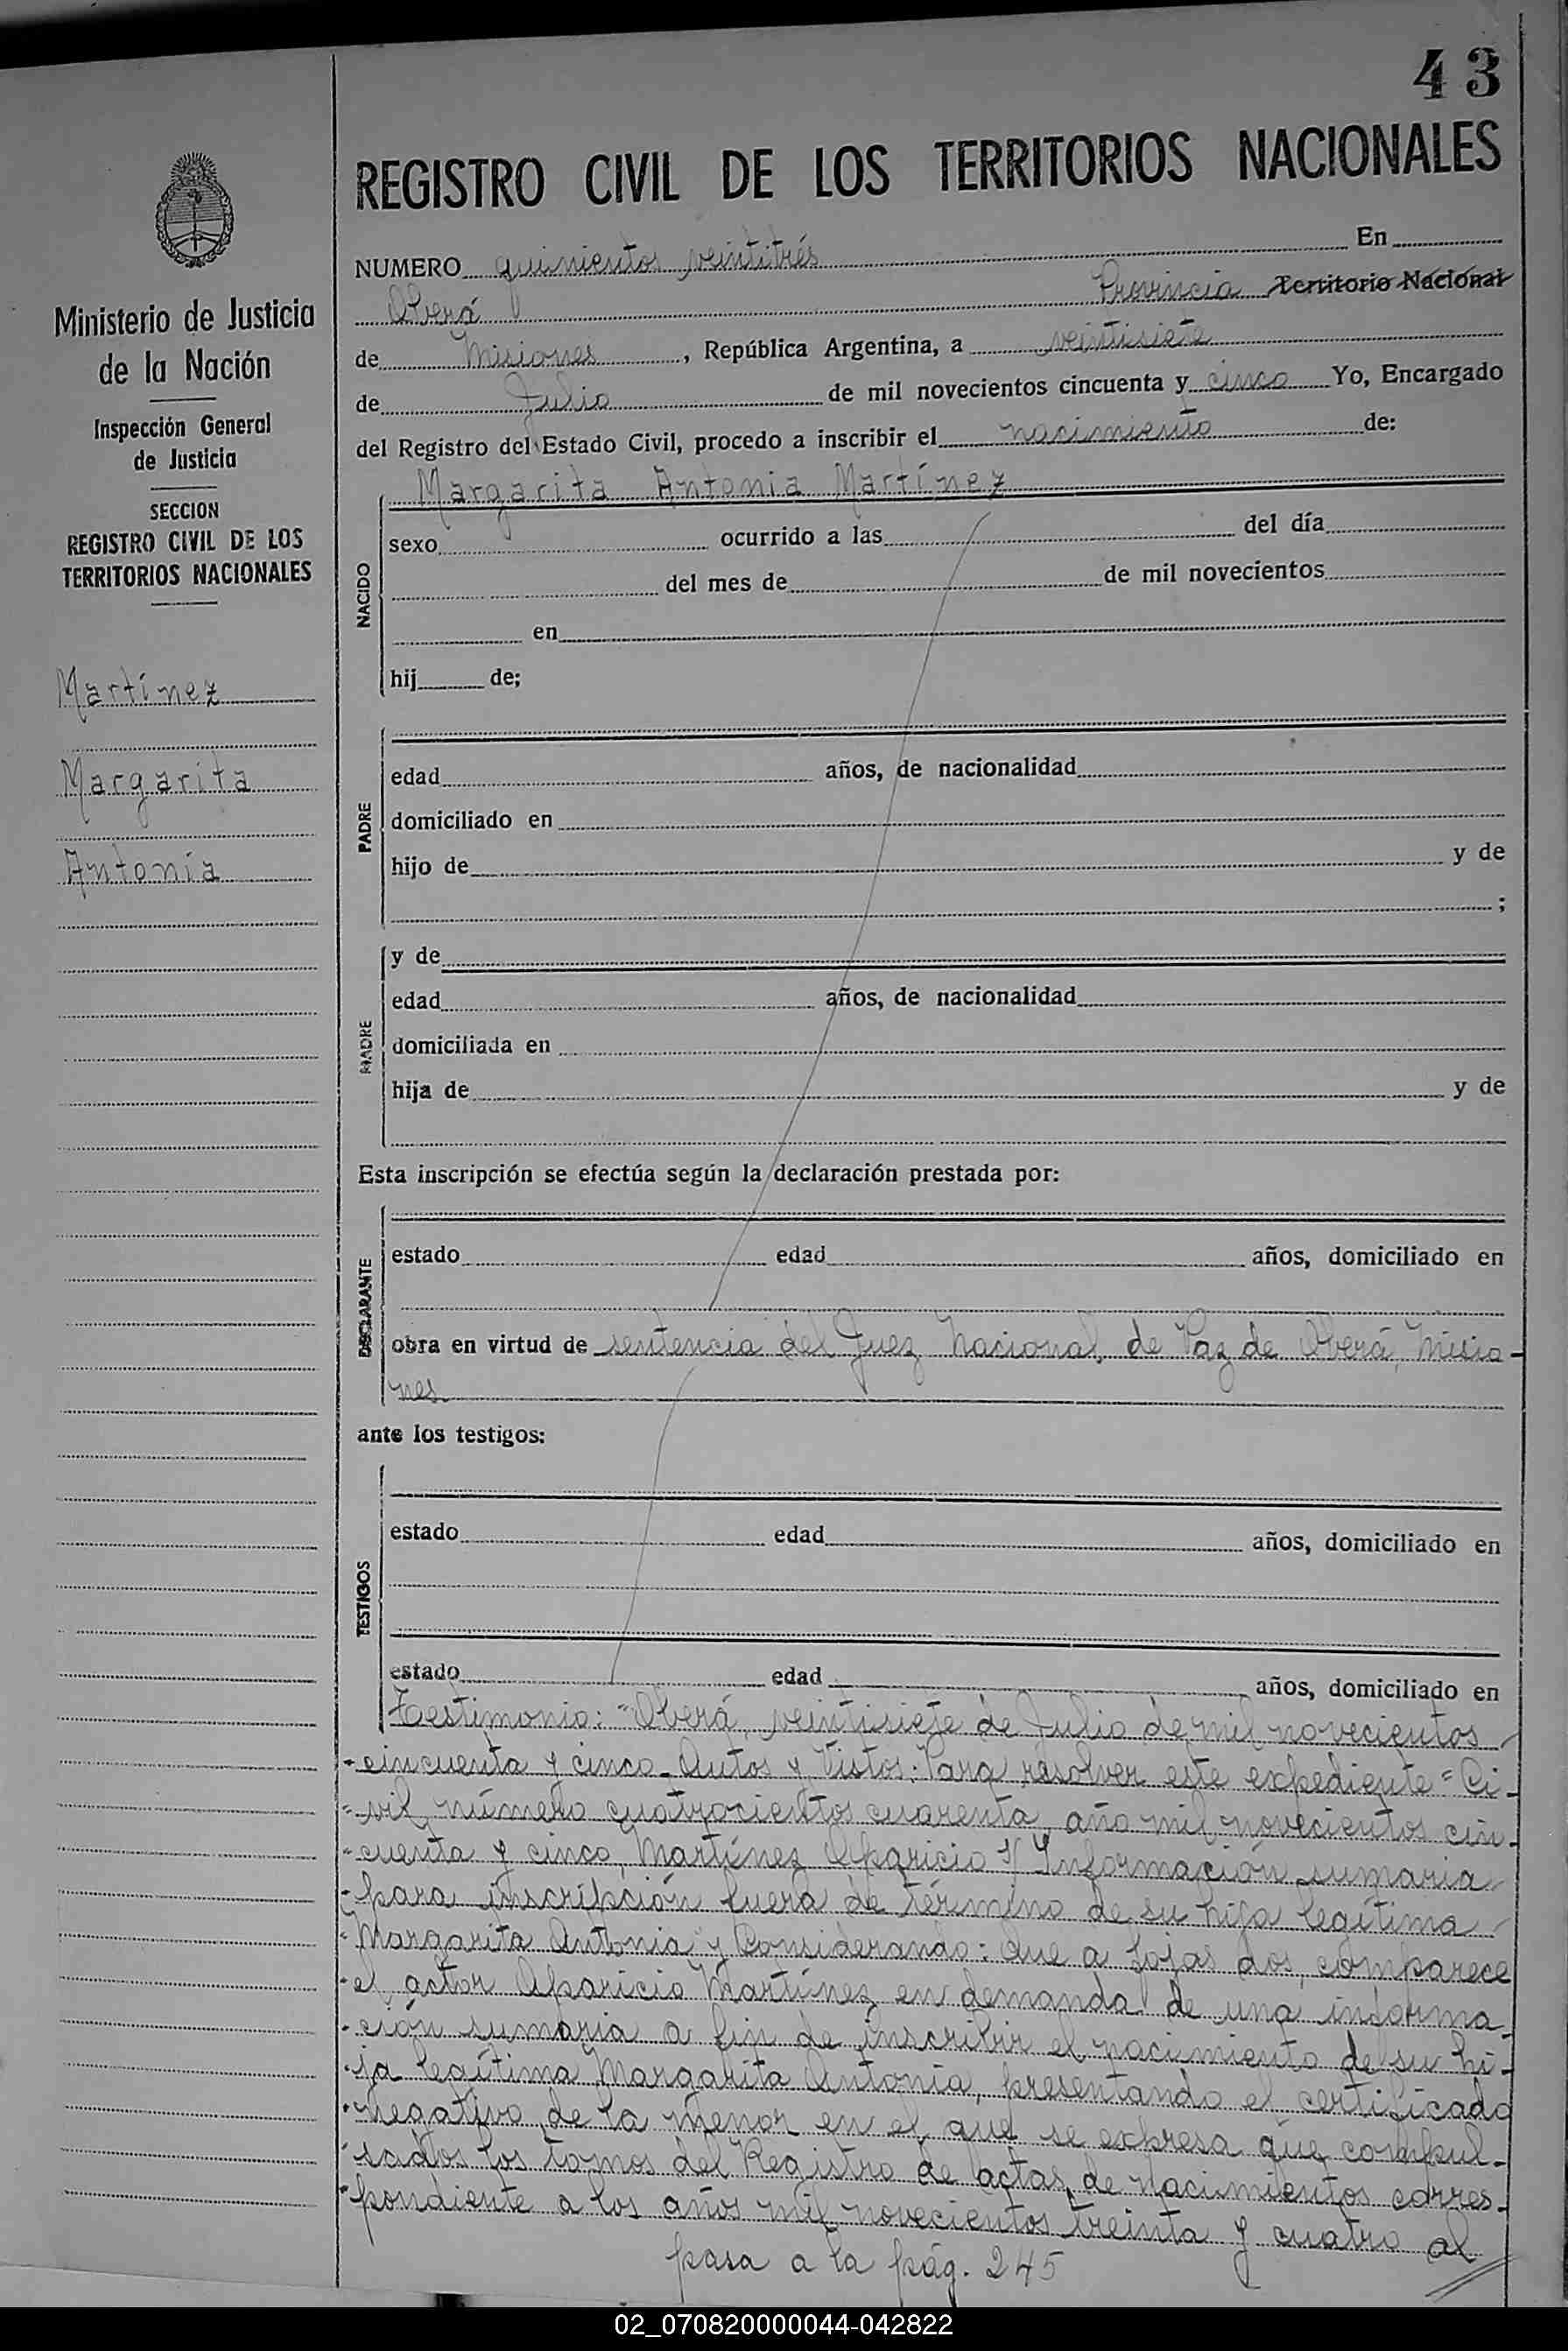 43
REGISTRO CIVIL DE LOS TERRITORIOS NACIONALES
Ministerio de Justicia
de la Nación
Inspección General
de Justicia
SECCION
REGISTRO CIVIL DE LOS
TERRITORIOS NACIONALES
Martínez
Margarita
Antonia
NUMERO quinientos veintitrés En
Oberá Provincia Territorio Nacional
de Misiones, República Argentina, a veintisiete
de Julio de mil novecientos cincuenta y cinco Yo, Encargado
del Registro del Estado Civil, procedo a inscribir el nacimiento de:
Margarita Antonia Martínez
NACIDO
sexo ocurrido a las del día
del mes de de mil novecientos
en
hij de;
PADRE
edad años, de nacionalidad
domiciliado en
hijo de y de
;
MADRE
y de
edad años, de nacionalidad
domiciliada en
hija de y de
Esta inscripción se efectúa según la declaración prestada por:
DECLARANTE
estado edad años, domiciliado en
obra en virtud de sentencia del Juez Nacional de Paz de Oberá, Misio-
nes
ante los testigos:
TESTIGOS
estado edad años, domiciliado en
estado edad años, domiciliado en
Testimonio: "Oberá, veintisiete de Julio de mil novecientos
cincuenta y cinco. Autos y Vistos: Para resolver este expediente "Ci-
vil número cuatrocientos cuarenta, año mil novecientos cin-
cuenta y cinco, Martínez Aparicio s/ Información sumaria
para inscripción fuera de término de su hija legítima
Margarita Antonia y Considerando: Que a fojas dos, comparece
el actor Aparicio Martínez en demanda de una informa-
ción sumaria a fin de inscribir el nacimiento de su hi-
ja legítima Margarita Antonia, presentando el certificado
negativo de la menor en el que se expresa que compul-
sados los tomos del Registro de actas de nacimientos corres-
pondiente a los años mil novecientos treinta y cuatro al
pasa a la pág. 245
02_070820000044-042822